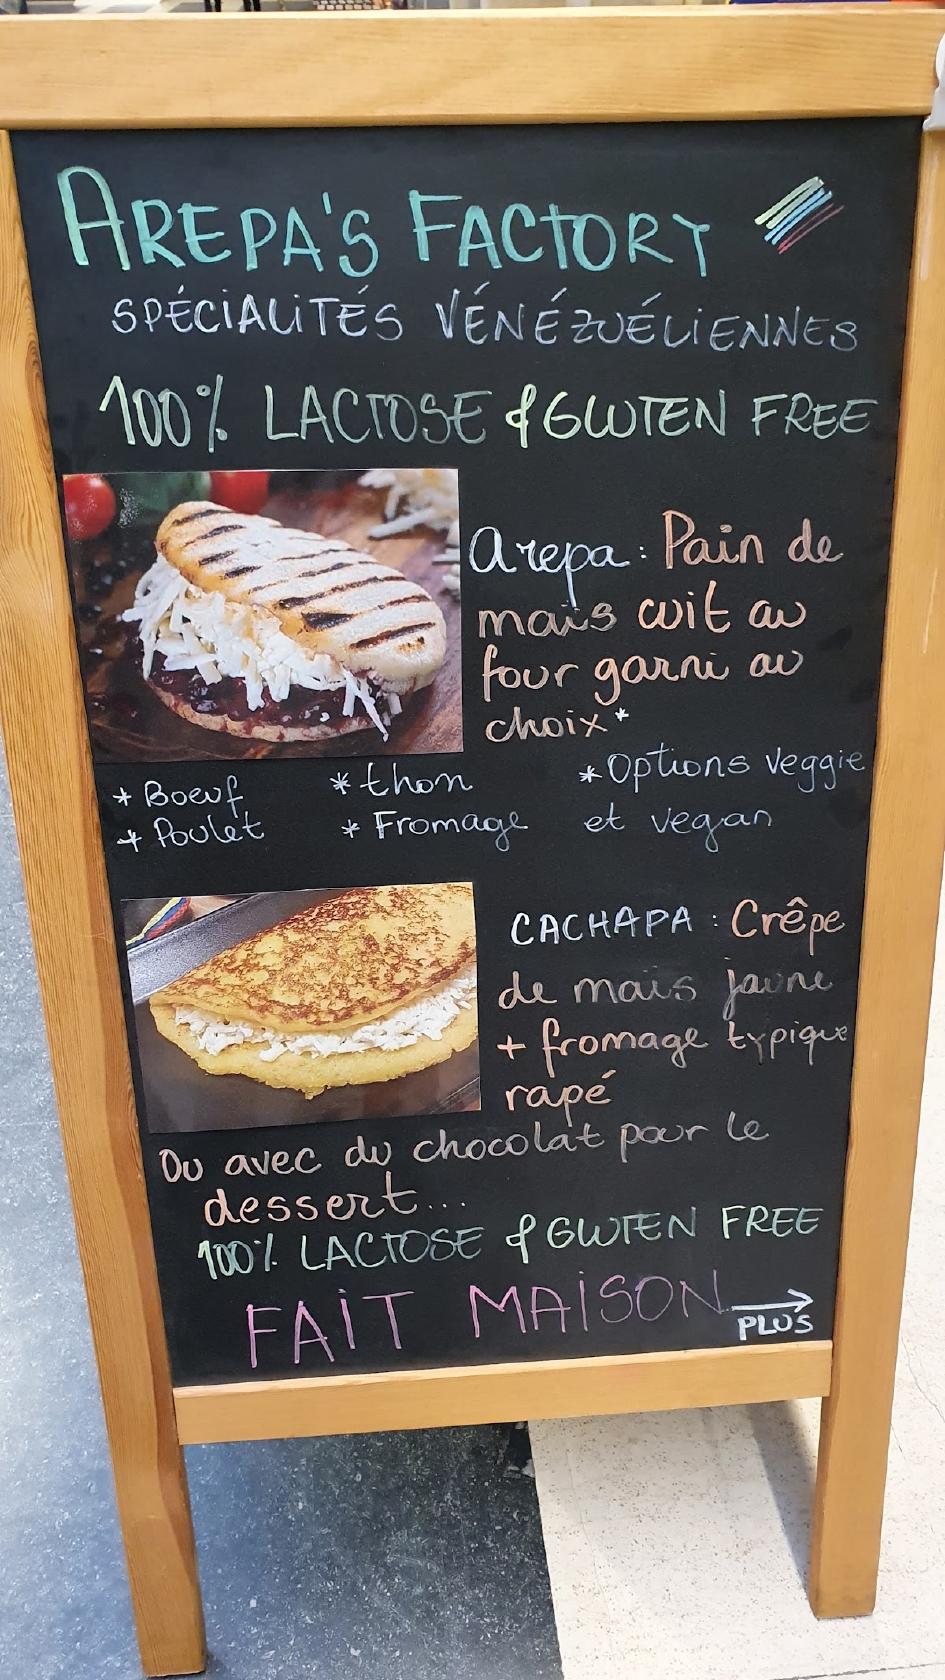 AREPA'S FACTORY
SPÉCIALITÉS VÉNÉZUÉLIENNES
100% LACTOSE & GLUTEN FREE
Arepa : Pain de
maïs cuit au
four garni au
choix*
* Boeuf * thon * Options veggie
* Poulet * Fromage et vegan
CACHAPA : Crêpe
de maïs jaune
+ fromage typique
rapé
Ou avec du chocolat pour le
dessert...
100% LACTOSE & GLUTEN FREE
FAIT MAISON →
PLUS